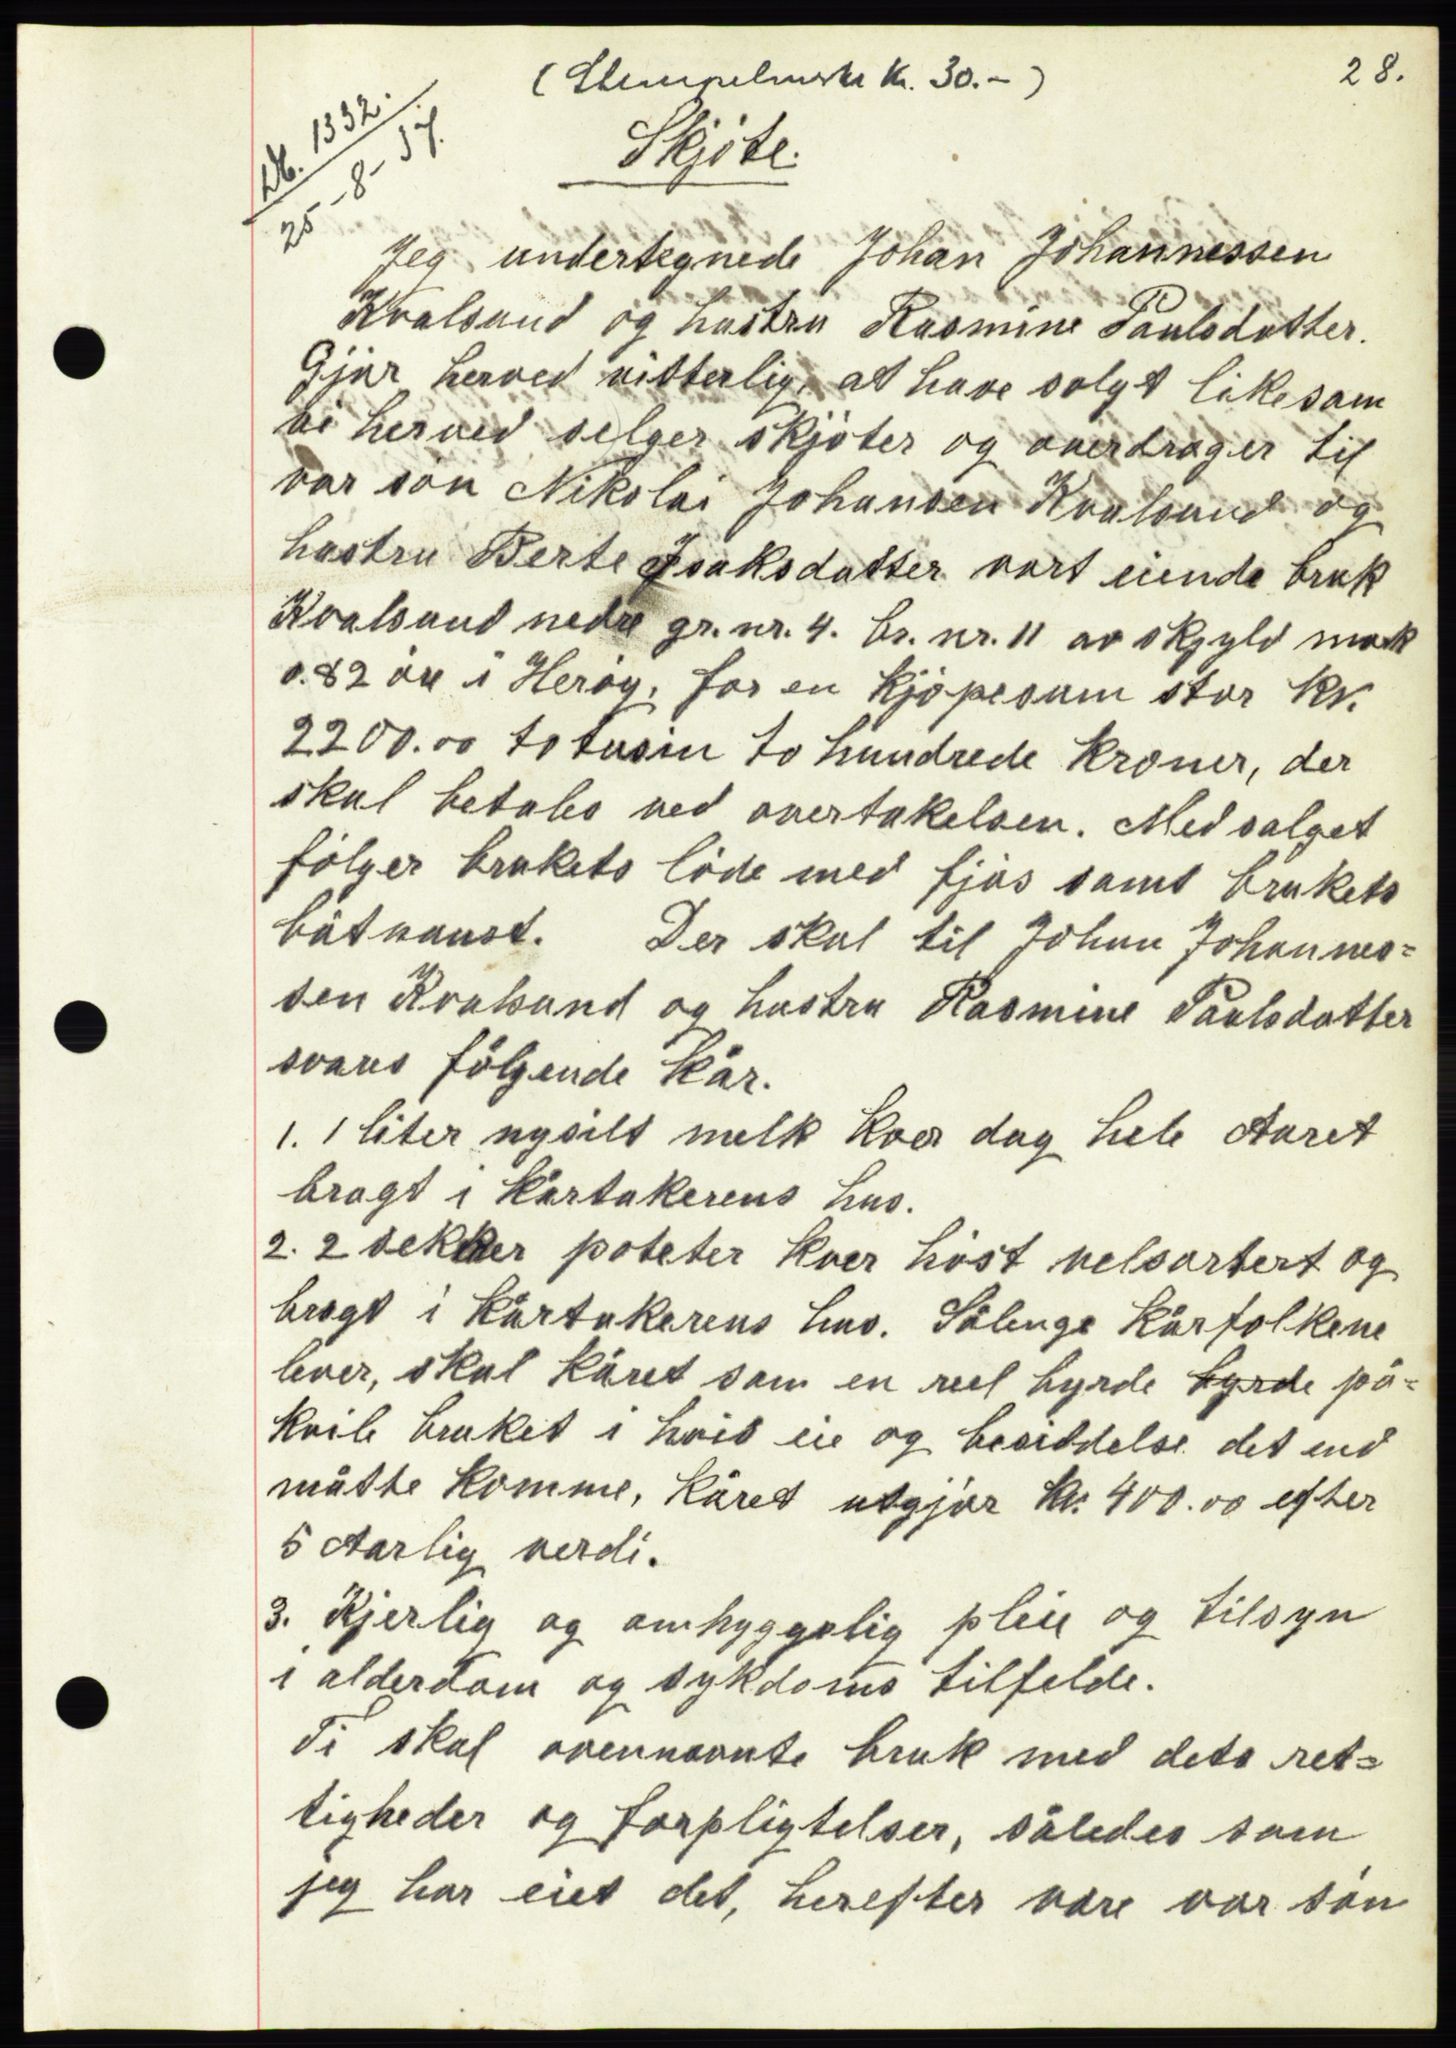 28.
(Stempelmerke Kr. 30.-)
Db. 1332.
25-8-37.
Skjöte.
Jeg undertegnede Johan Johannessen
Kvalsund og hustru Rasmine Paulsdatter.
Gjør herved vitterlig, at have solgt likesom
vi herved selger skjöter og overdrager til
vor sön Nikolai Johansen Kvalsund og
hustru Berte Isaksdatter vort eiende bruk
Kvalsund nedre gr. nr. 4. br. nr. 11 av skjyld mark
0.82 öre i Heröy, for en kjöpesum stor kr.
2200.00 totusin to hundrede kroner, der
skal betales ved overtakelsen. Med salget
fölger brukets löde med fjös samt brukets
båtnaust. Der skal til Johan Johannes=
sen Kvalsund og hustru Rasmine Paulsdatter
svares fölgende kår.
1. 1 liter nysilt melk kver dag hele Aaret
bragt i kårtakerens hus.
2. 2 sekker poteter kver höst velsortert og
bragt i kårtakerens hus. Sålenge kårfolkene
lever, skal kåret som en reel byrde byrde på=
kvile bruket i hvis eie og besiddelse det end
måtte komme, kåret utgjör kr. 400.00 efter
5 Aarlig verdi.
3. Kjerlig og omhyggelig pleie og tilsyn
i alderdom og sykdoms tilfelde.
Ti skal ovennevnte bruk med dets ret=
tigheder og forpligtelser, således som
jeg har eiet det, herefter være vor sön